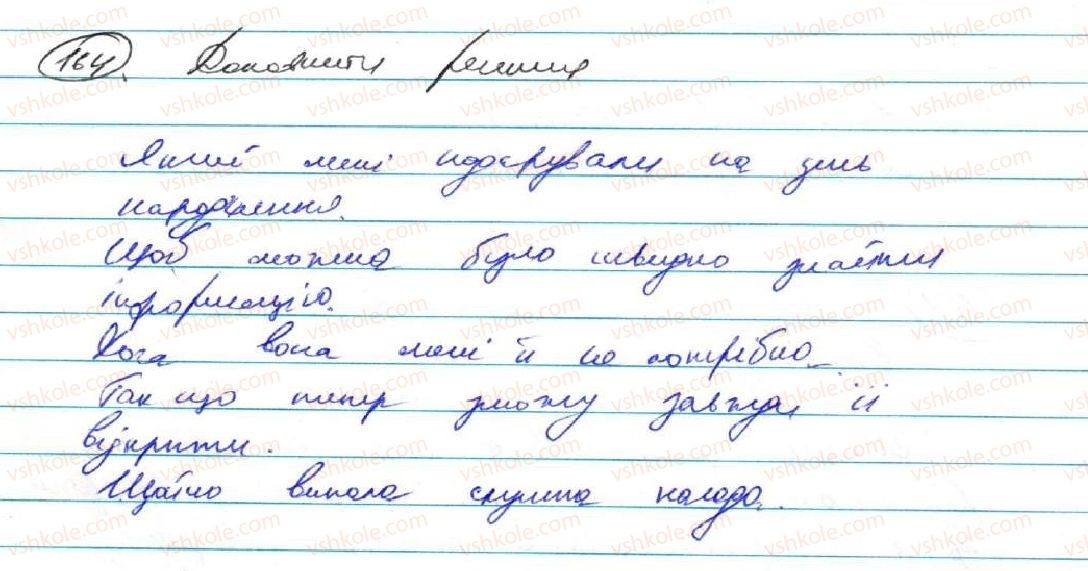 164. Доповнити речення
Який мені подарували на день
народження.
Щоб можна було швидко знайти
інформацію.
Хоча вона мені й не потрібна.
Так що тепер зможу завжди її
відкрити.
Щойно випала слушна нагода.